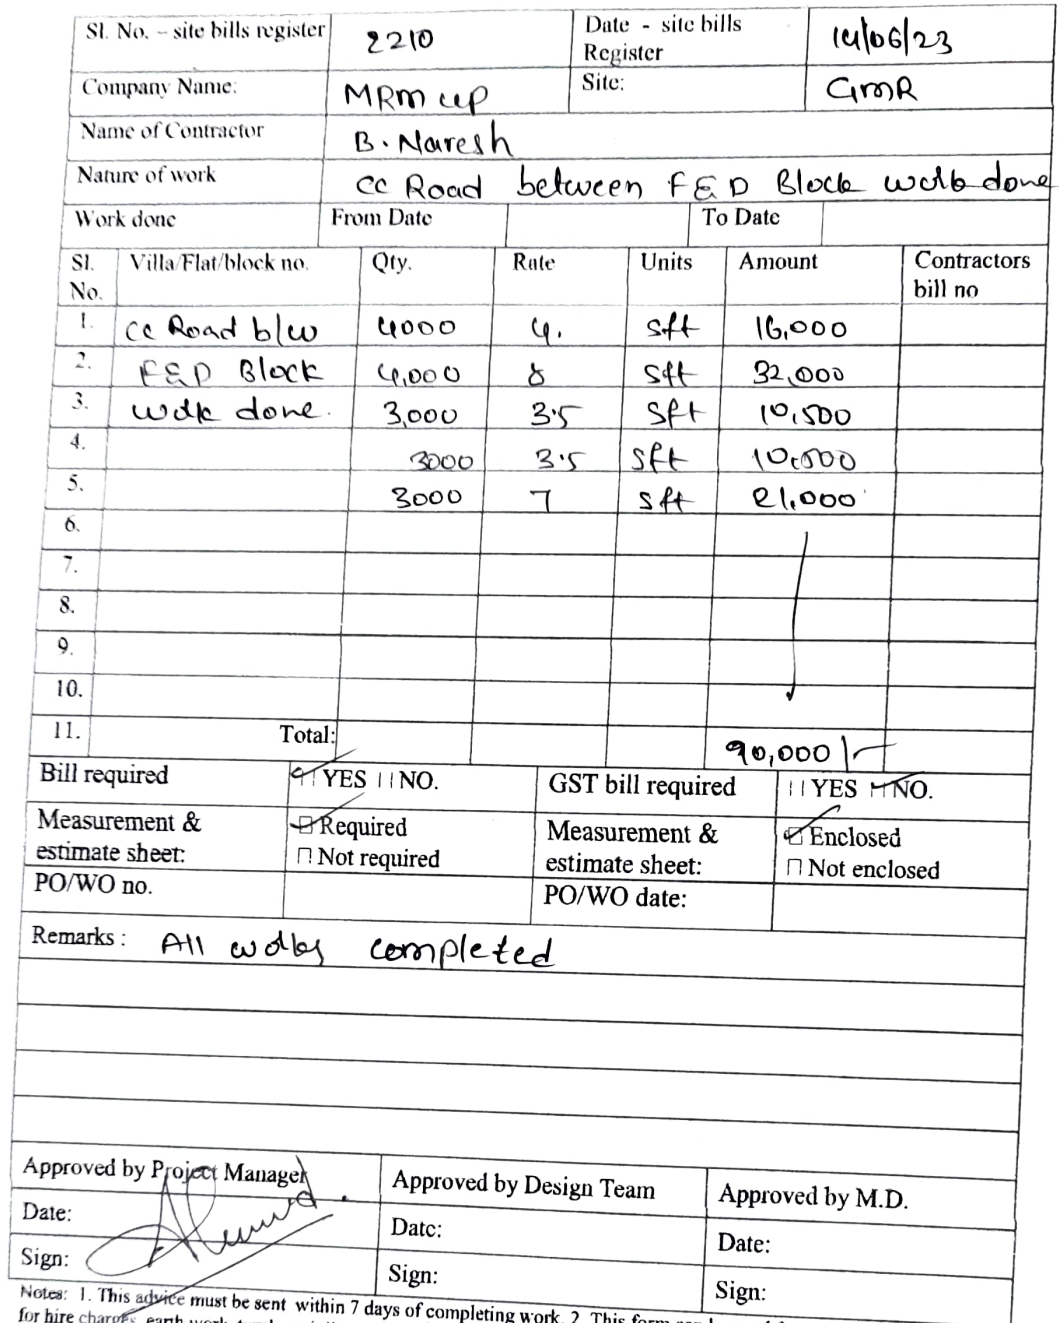 Sl. No. – site bills register 2210 Date - site bills Register 14/06/23
Company Name: MRM LLP Site: GMR
Name of Contractor B. Naresh
Nature of work CC Road between F & D Block work done
Work done From Date To Date
Sl. No. Villa/Flat/block no. Qty. Rate Units Amount Contractors bill no
1. CC Road b/w 4000 4. sft 16,000
2. F & D Block 4,000 8 sft 32,000
3. work done. 3,000 3.5 sft 10,500
4. 3000 3.5 sft 10,500
5. 3000 7 sft 21,000
6.
7.
8.
9.
10.
11. Total: 90,000/-
Bill required YES NO. GST bill required YES NO.
Measurement & estimate sheet: Required Not required Measurement & estimate sheet: Enclosed Not enclosed
PO/WO no. PO/WO date:
Remarks : All works completed
Approved by Project Manager Approved by Design Team Approved by M.D.
Date: Date: Date:
Sign: Sign: Sign:
Notes: 1. This advice must be sent within 7 days of completing work. 2. This form
for hire charges, earth work,